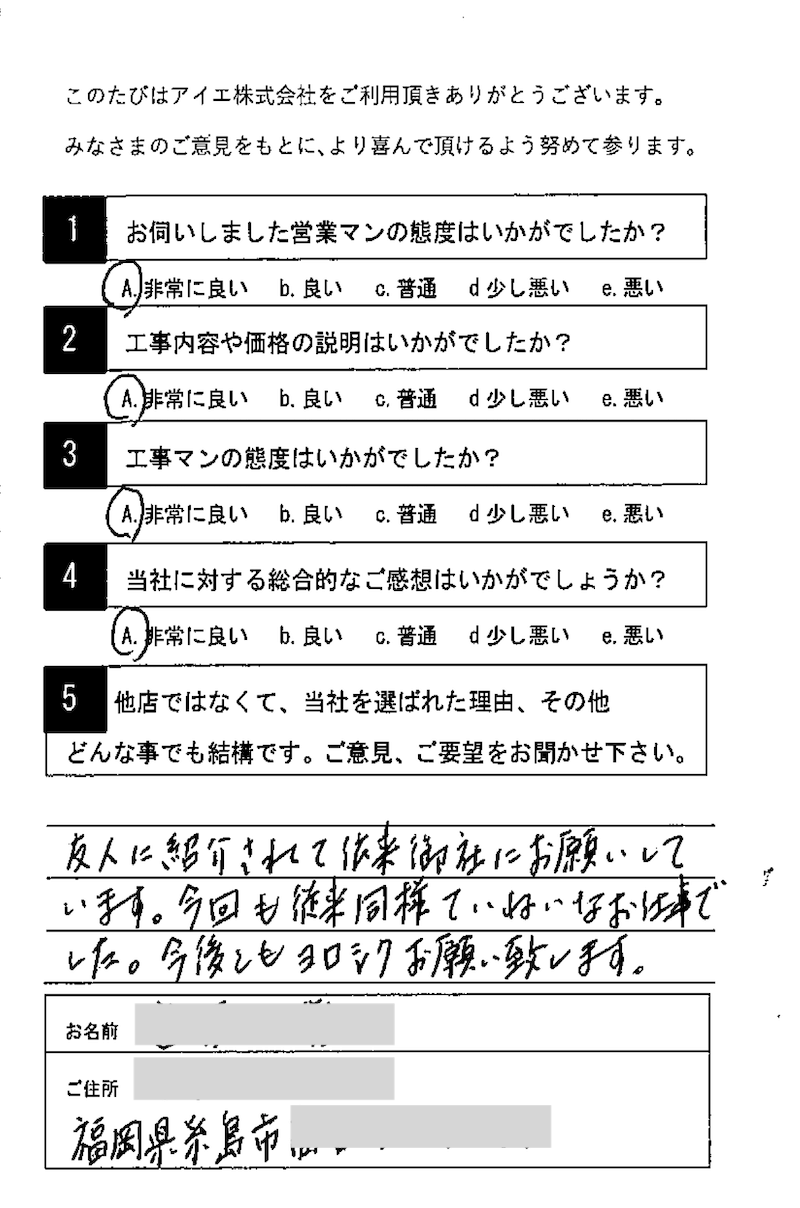 このたびはアイエ株式会社をご利用頂きありがとうございます。
みなさまのご意見をもとに、より喜んで頂けるよう努めて参ります。
1 お伺いしました営業マンの態度はいかがでしたか？
A. 非常に良い b. 良い c. 普通 d 少し悪い e. 悪い
2 工事内容や価格の説明はいかがでしたか？
A. 非常に良い b. 良い c. 普通 d 少し悪い e. 悪い
3 工事マンの態度はいかがでしたか？
A. 非常に良い b. 良い c. 普通 d 少し悪い e. 悪い
4 当社に対する総合的なご感想はいかがでしょうか？
A. 非常に良い b. 良い c. 普通 d 少し悪い e. 悪い
5 他店ではなくて、当社を選ばれた理由、その他
どんな事でも結構です。ご意見、ご要望をお聞かせ下さい。
友人に紹介されて従来御社にお願いして
います。今回も従来同様ていねいなお仕事で
した。今後ともヨロシクお願い致します。
お名前
ご住所
福岡県糸島市